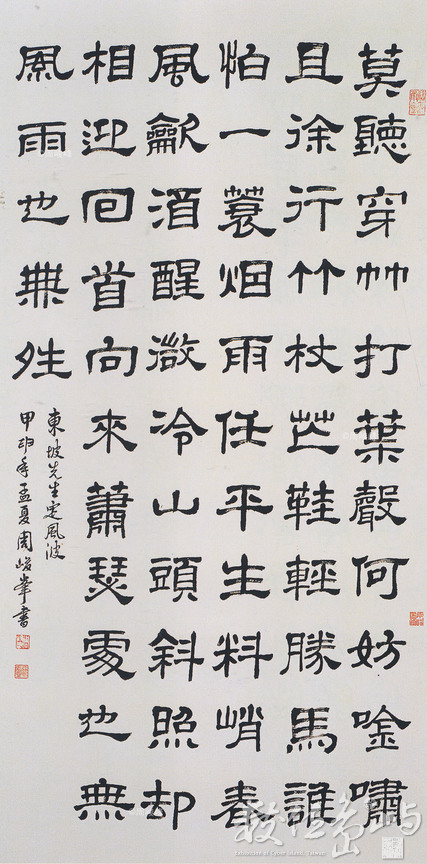 莫聽穿林打葉聲何妨唫嘯
且徐行竹杖芒鞵輕勝馬誰
怕一蓑烟雨任平生料峭春
風龡酒醒微冷山頭斜照却
相迎回首向來蕭瑟處也無
風雨也無夝
東坡先生定風波
甲申年孟夏周峻峯書
數位島嶼